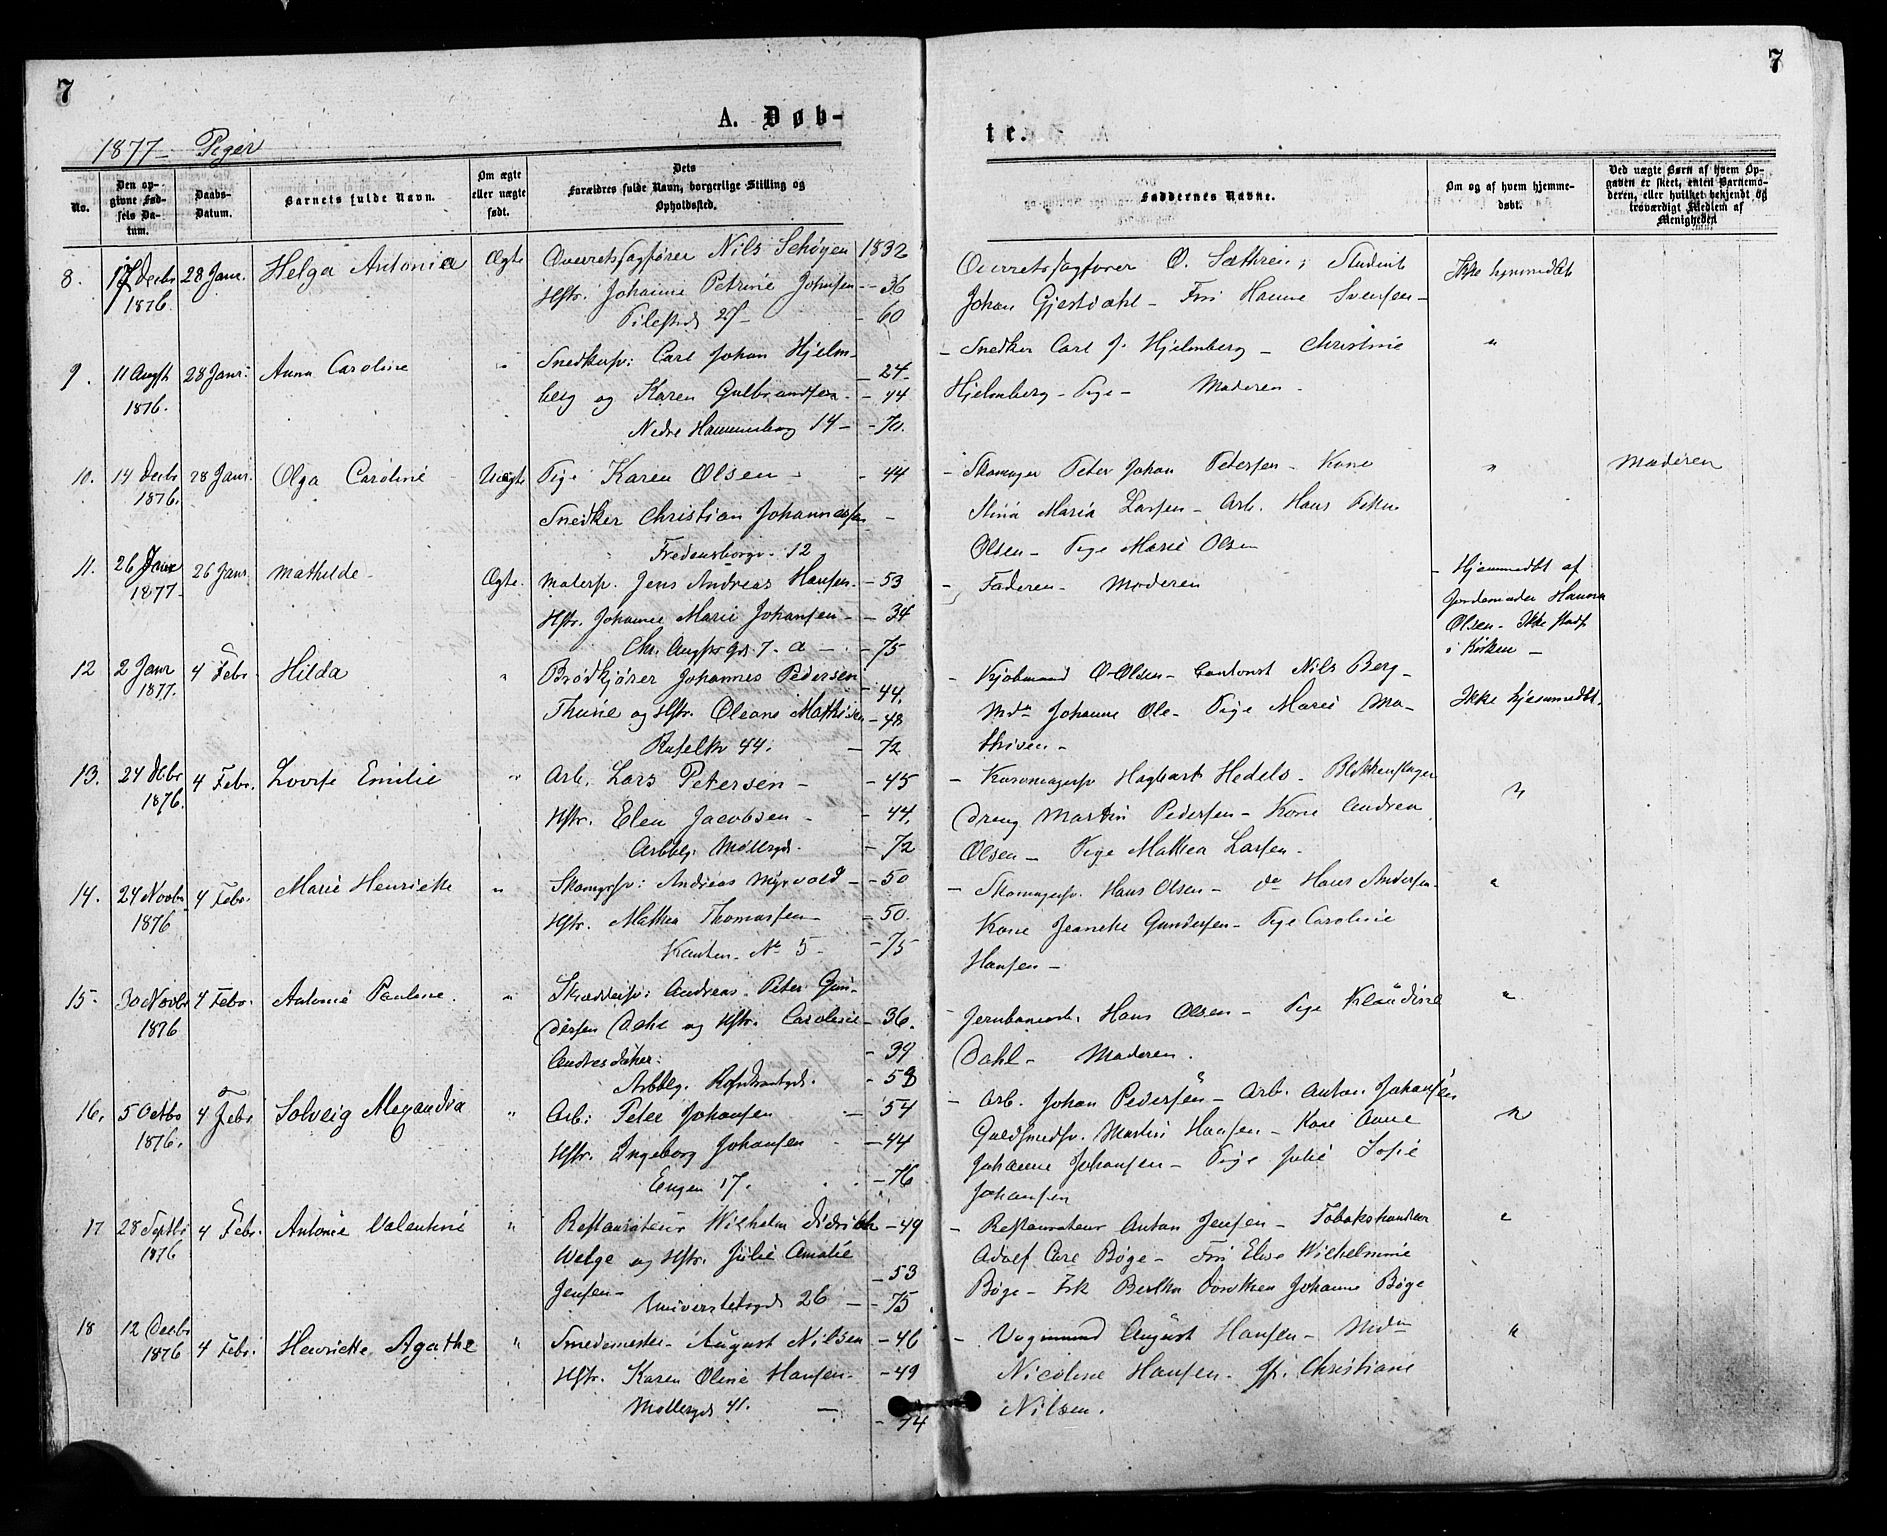 7
7
A. Døb-
te.
1877 - Piger
No.
Den op-
givne Fød-
sels Da-
tum.
Daabs-
Datum.
Barnets fulde Navn.
Om ægte
eller uægte
født.
Dets
Forældres fulde Navn, borgerlige Stilling og
Opholdssted.
Faddernes Navne.
Om og af hvem hjemme-
døbt.
Ved uægte Børn af hvem Op-
gaven er skeet, enten Barnemo-
deren, eller hvilket bekjendt og
troværdigt Medlem af
Menigheden
8. 17 Decbr 28 Janr. Helga Antonia Ægte Overretssagfører Nils Schøyen 1832
1876. Hstr. Johanne Petrine Johnsen - 36
Pilestrd 27 - - 60
Overretssagfører O. Sæthren; Student Ikke hjemmedøbt
Johan Gjestdahl - Fru Hanne Svensen -
9. 11 Augst 28 Janr. Anna Caroline " Snedkersv: Carl Johan Hjelm- - 24
1876. berg og Karen Gulbrandsen - - 44
Nedre Hammersborg 14 - - 70.
- Snedker Carl J. Hjelmberg - Christine "
Hjelmberg - Pige - Moderen.
10. 14 Decbr 28 Janr. Olga Caroline Uægte Pige Karen Olsen - - 44
1876. Snedker Christian Johannessen -
Fredensborgv. 12
- Skomager Peter Johan Petersen - Kone " Moderen
Stina Maria Larsen - Arb. Hans Peter
Olsen - Pige Marie Olsen
11. 26 Janr 26 Janr Mathilde - Ægte. Malersv. Jens Andreas Hansen - 53
1877 - Hstr. Johanne Marie Johansen - - 34
Chr. Augsts gd 7. a - - 75
- Faderen - Moderen - Hjemmedbt af
Jordemoder Hanna
Olsen - Ikke stadf
i Kirken -
12 2 Janr 4 Febr. Hilda " Brødkjører Johannes Pedersen - 44.
1877. Thune og Hstr. Oleane Mathisen - 48
Russeløkv 44. - 72
- Kjøbmand O. Olsen - Contorist Nils Berg - Ikke hjemmedbt.
Mdm Johanne Ole - Pige Marie Ma-
thisen -
13. 24 Decbr 4 Febr. Lovise Emilie " Arb. Lars Petersen - - 45
1876. Hstr. Elen Jacobsen - - 44.
Arbblg. Møllergd. - 72
- Kurvmagersv Hagbart Hedels - Blikkenslager "
Dreng Martin Pedersen - Kone Andrea
Olsen - Pige Mathea Larsen.
14. 24 Novbr 4 Febr. Marie Henriette " Skomgrsv: Andreas Myrvold - 50
1876 Hstr. Mathea Thomassen - - 50.
Kanten - No 5 - - 75
- Skomagersv. Hans Olsen - do Hans Andersen "
Kone Jeanette Gundersen - Pige Caroline
Hansen -
15. 30 Novbr 4 Febr. Antonie Pauline. " Skræddersv: Andreas Peter Gun-
1876 dersen og Hstr. Caroline - 36.
Andresdatter. - 39
Arbblg. - 58
Jernbanearb. Hans Olsen - Pige Klaudine "
Dahl - Moderen.
16. 5 Octbr 4 Febr Solveig Alexandra " Arb: Peter Johansen - 54
1876. Hstr. Ingeborg Johansen - 44
Engen 17. - 76
- Arb. Johan Pedersen - Arb. Anton Johansen "
Guldsmedsv. Martin Hansen - Kone Anne
Johanne Johansen - Pige Julie Sofie
Johansen
17 28 Septbr 4 Febr. Antonie Valentine " Restaurateur Wilhelm Didrich - 49
1876 Welge og Hstr. Julie Amalie
Jensen - - 53
Universitetsgd 26 - - 75.
- Restaurateur Anton Jensen - Tobakshandler "
Adolf Carl Bøge - Fru Elise Wilhelmine
Bøge - Frk Bertha Dorothea Johanne Bøge
18 12 Decbr 4 Febr. Henriette Agathe " Smedemester August Nilsen - 46
1876 Hstr. Karen Oline Hansen - - 49
Møllergd 41. - - 74
- Vognmand August Hansen - Mdm "
Nicoline Hansen - Christiane
Nilsen.